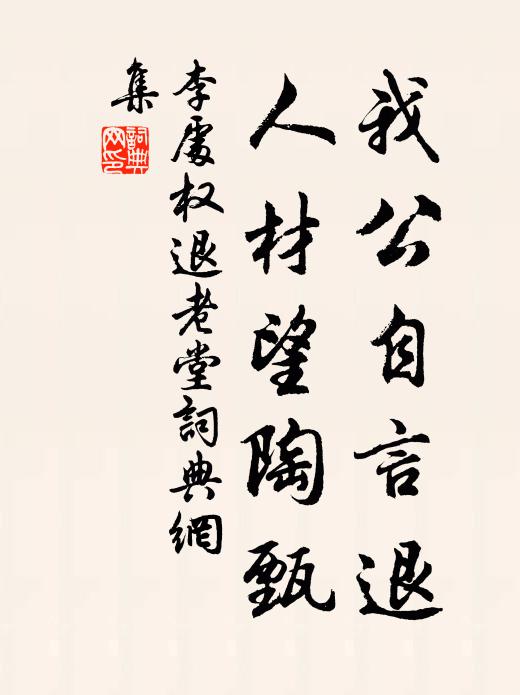 我公自言退
人材望陶甄
李處权退老堂詞典網
集
詞典網印